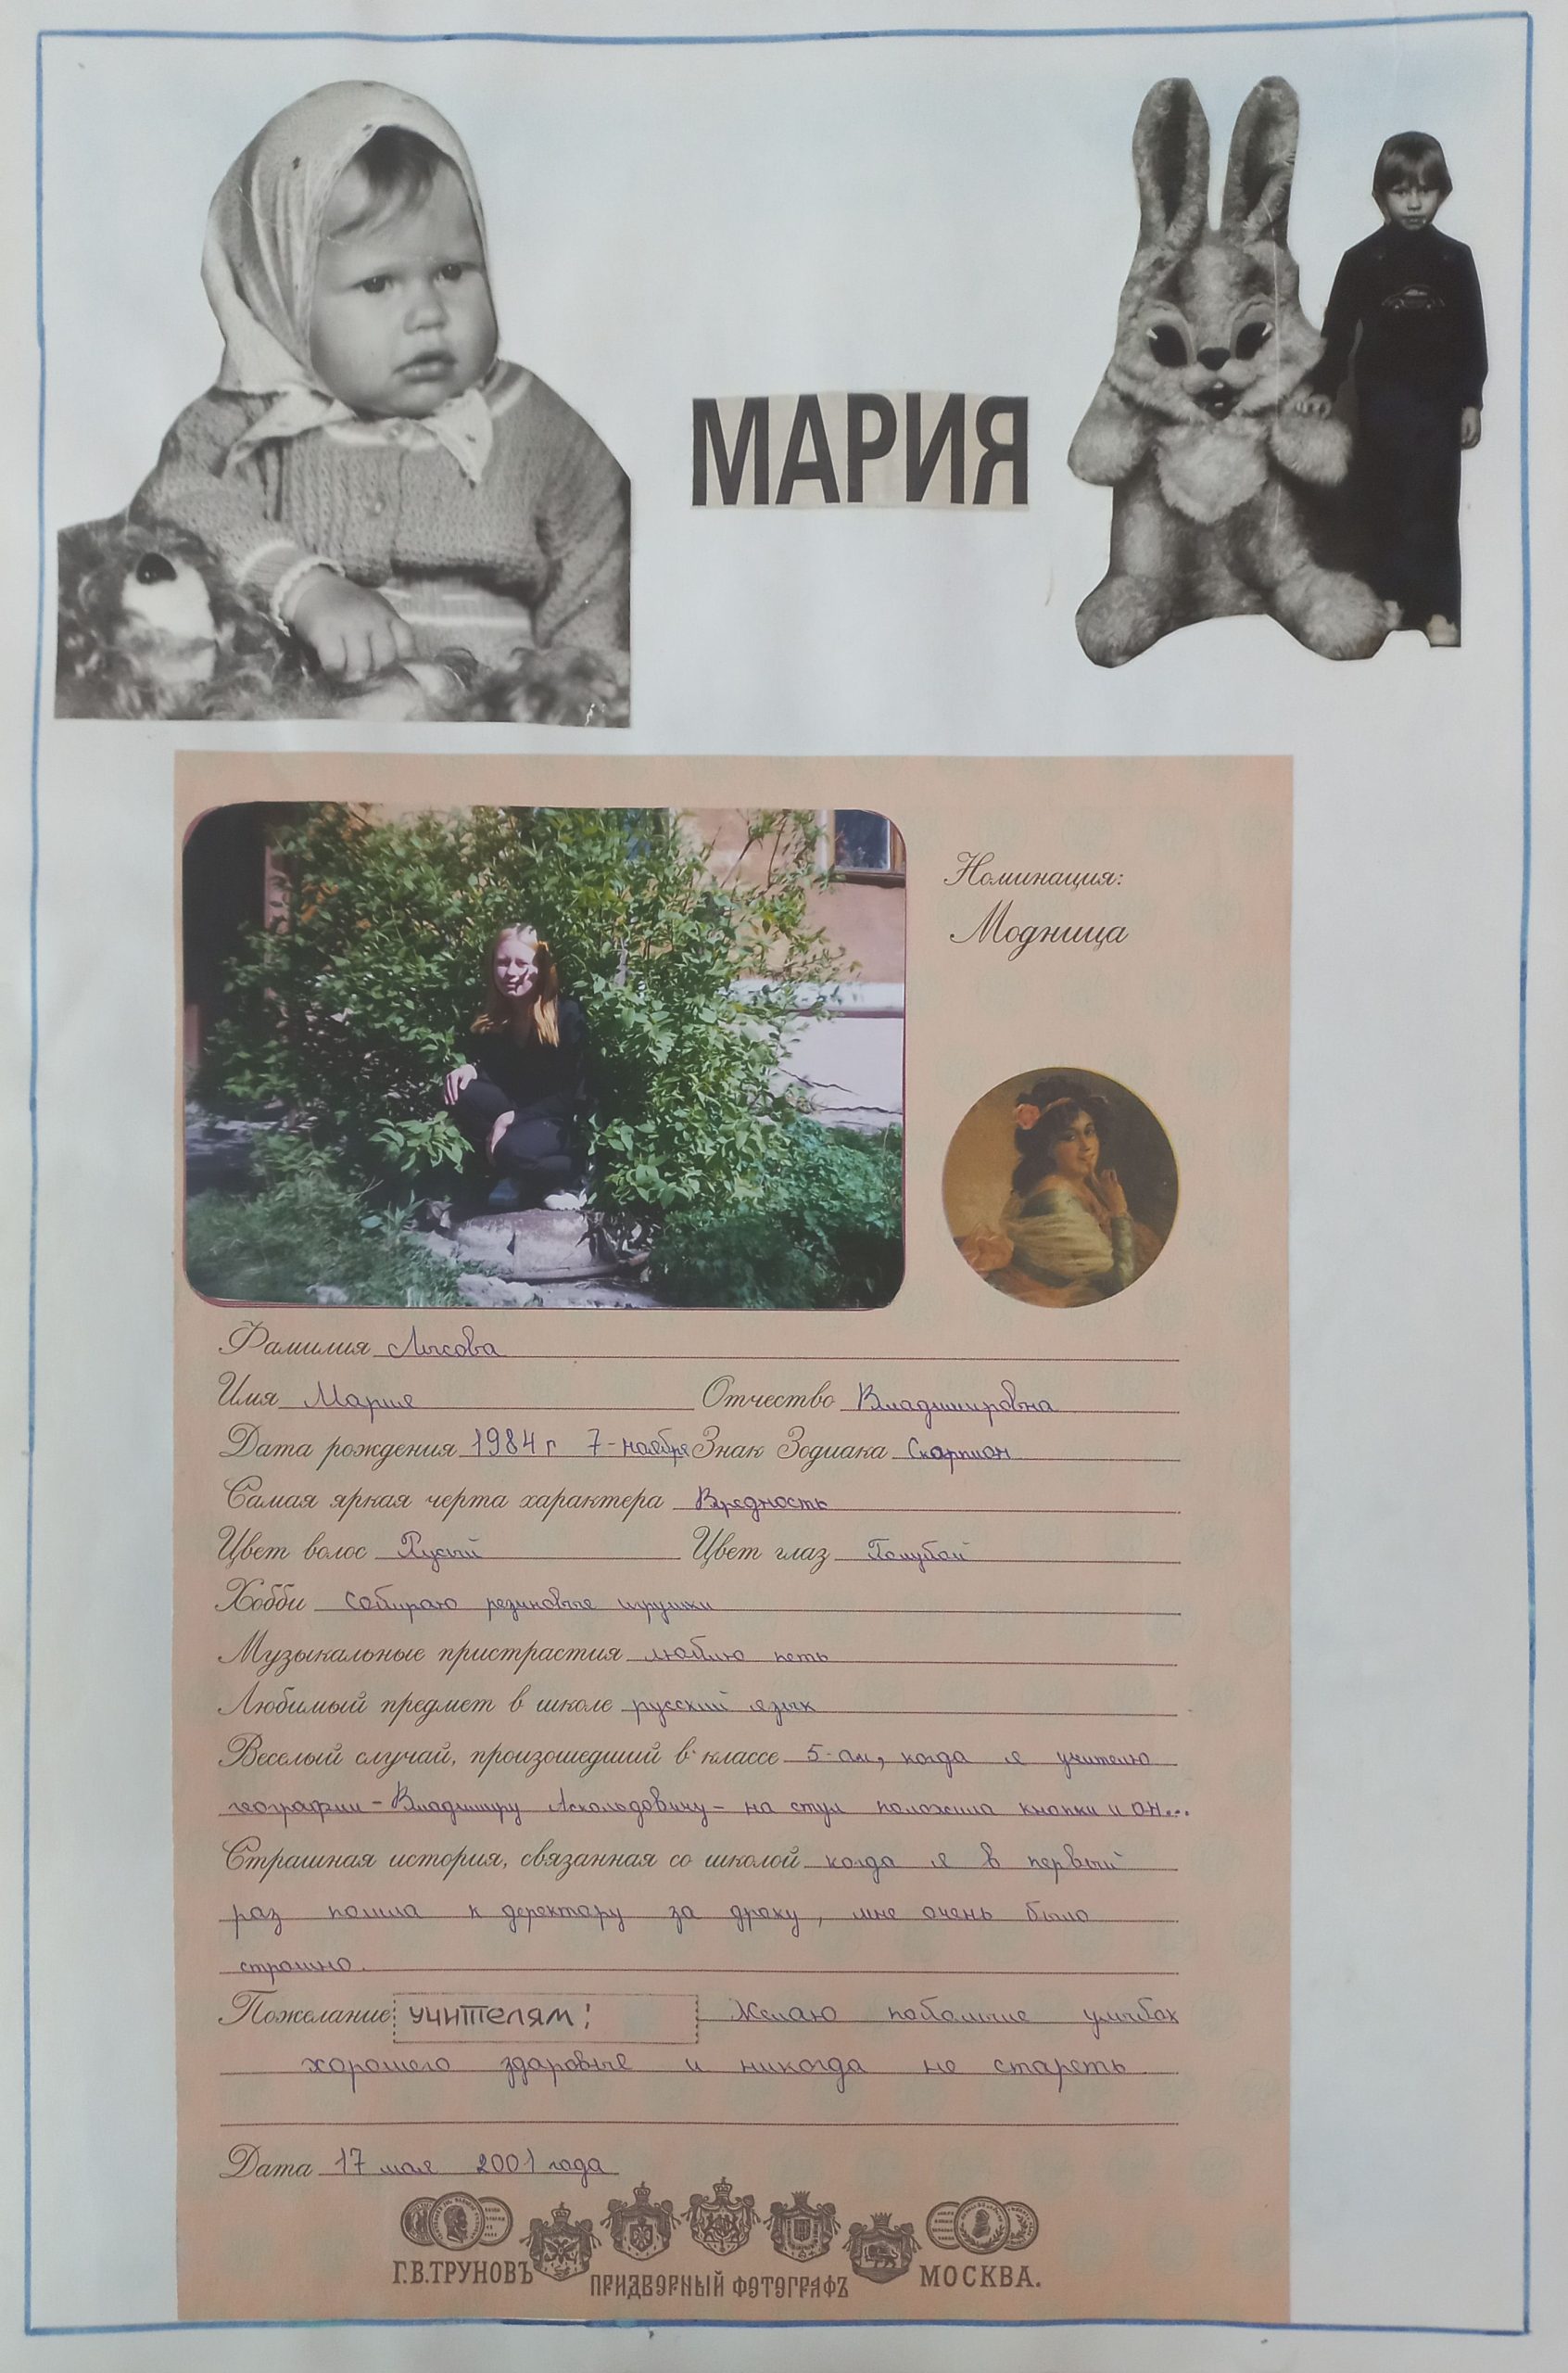 МАРИЯ
Номинация:
Модница
Фамилия Лысова
Имя Мария Отчество Владимировна
Дата рождения 1984 г 7-ноября Знак Зодиака Скорпион
Самая яркая черта характера Вредность
Цвет волос Русый Цвет глаз Голубой
Хобби собираю резиновые игрушки
Музыкальные пристрастия люблю петь
Любимый предмет в школе русский язык
Веселый случай, произошедший в классе 5-ом, когда я учителю
географии - Владимиру Аскольдовичу - на стул положила кнопки и он...
Страшная история, связанная со школой когда я в первый
раз пошла к деректару за драку, мне очень было
страшно.
Пожелание учителям: Желаю побольше улыбок
хорошего здоровье и никогда не стареть
Дата 17 мая 2001 года
Г.В.ТРУНОВЪ ПРИДВОРНЫЙ ФОТОГРАФЪ МОСКВА.